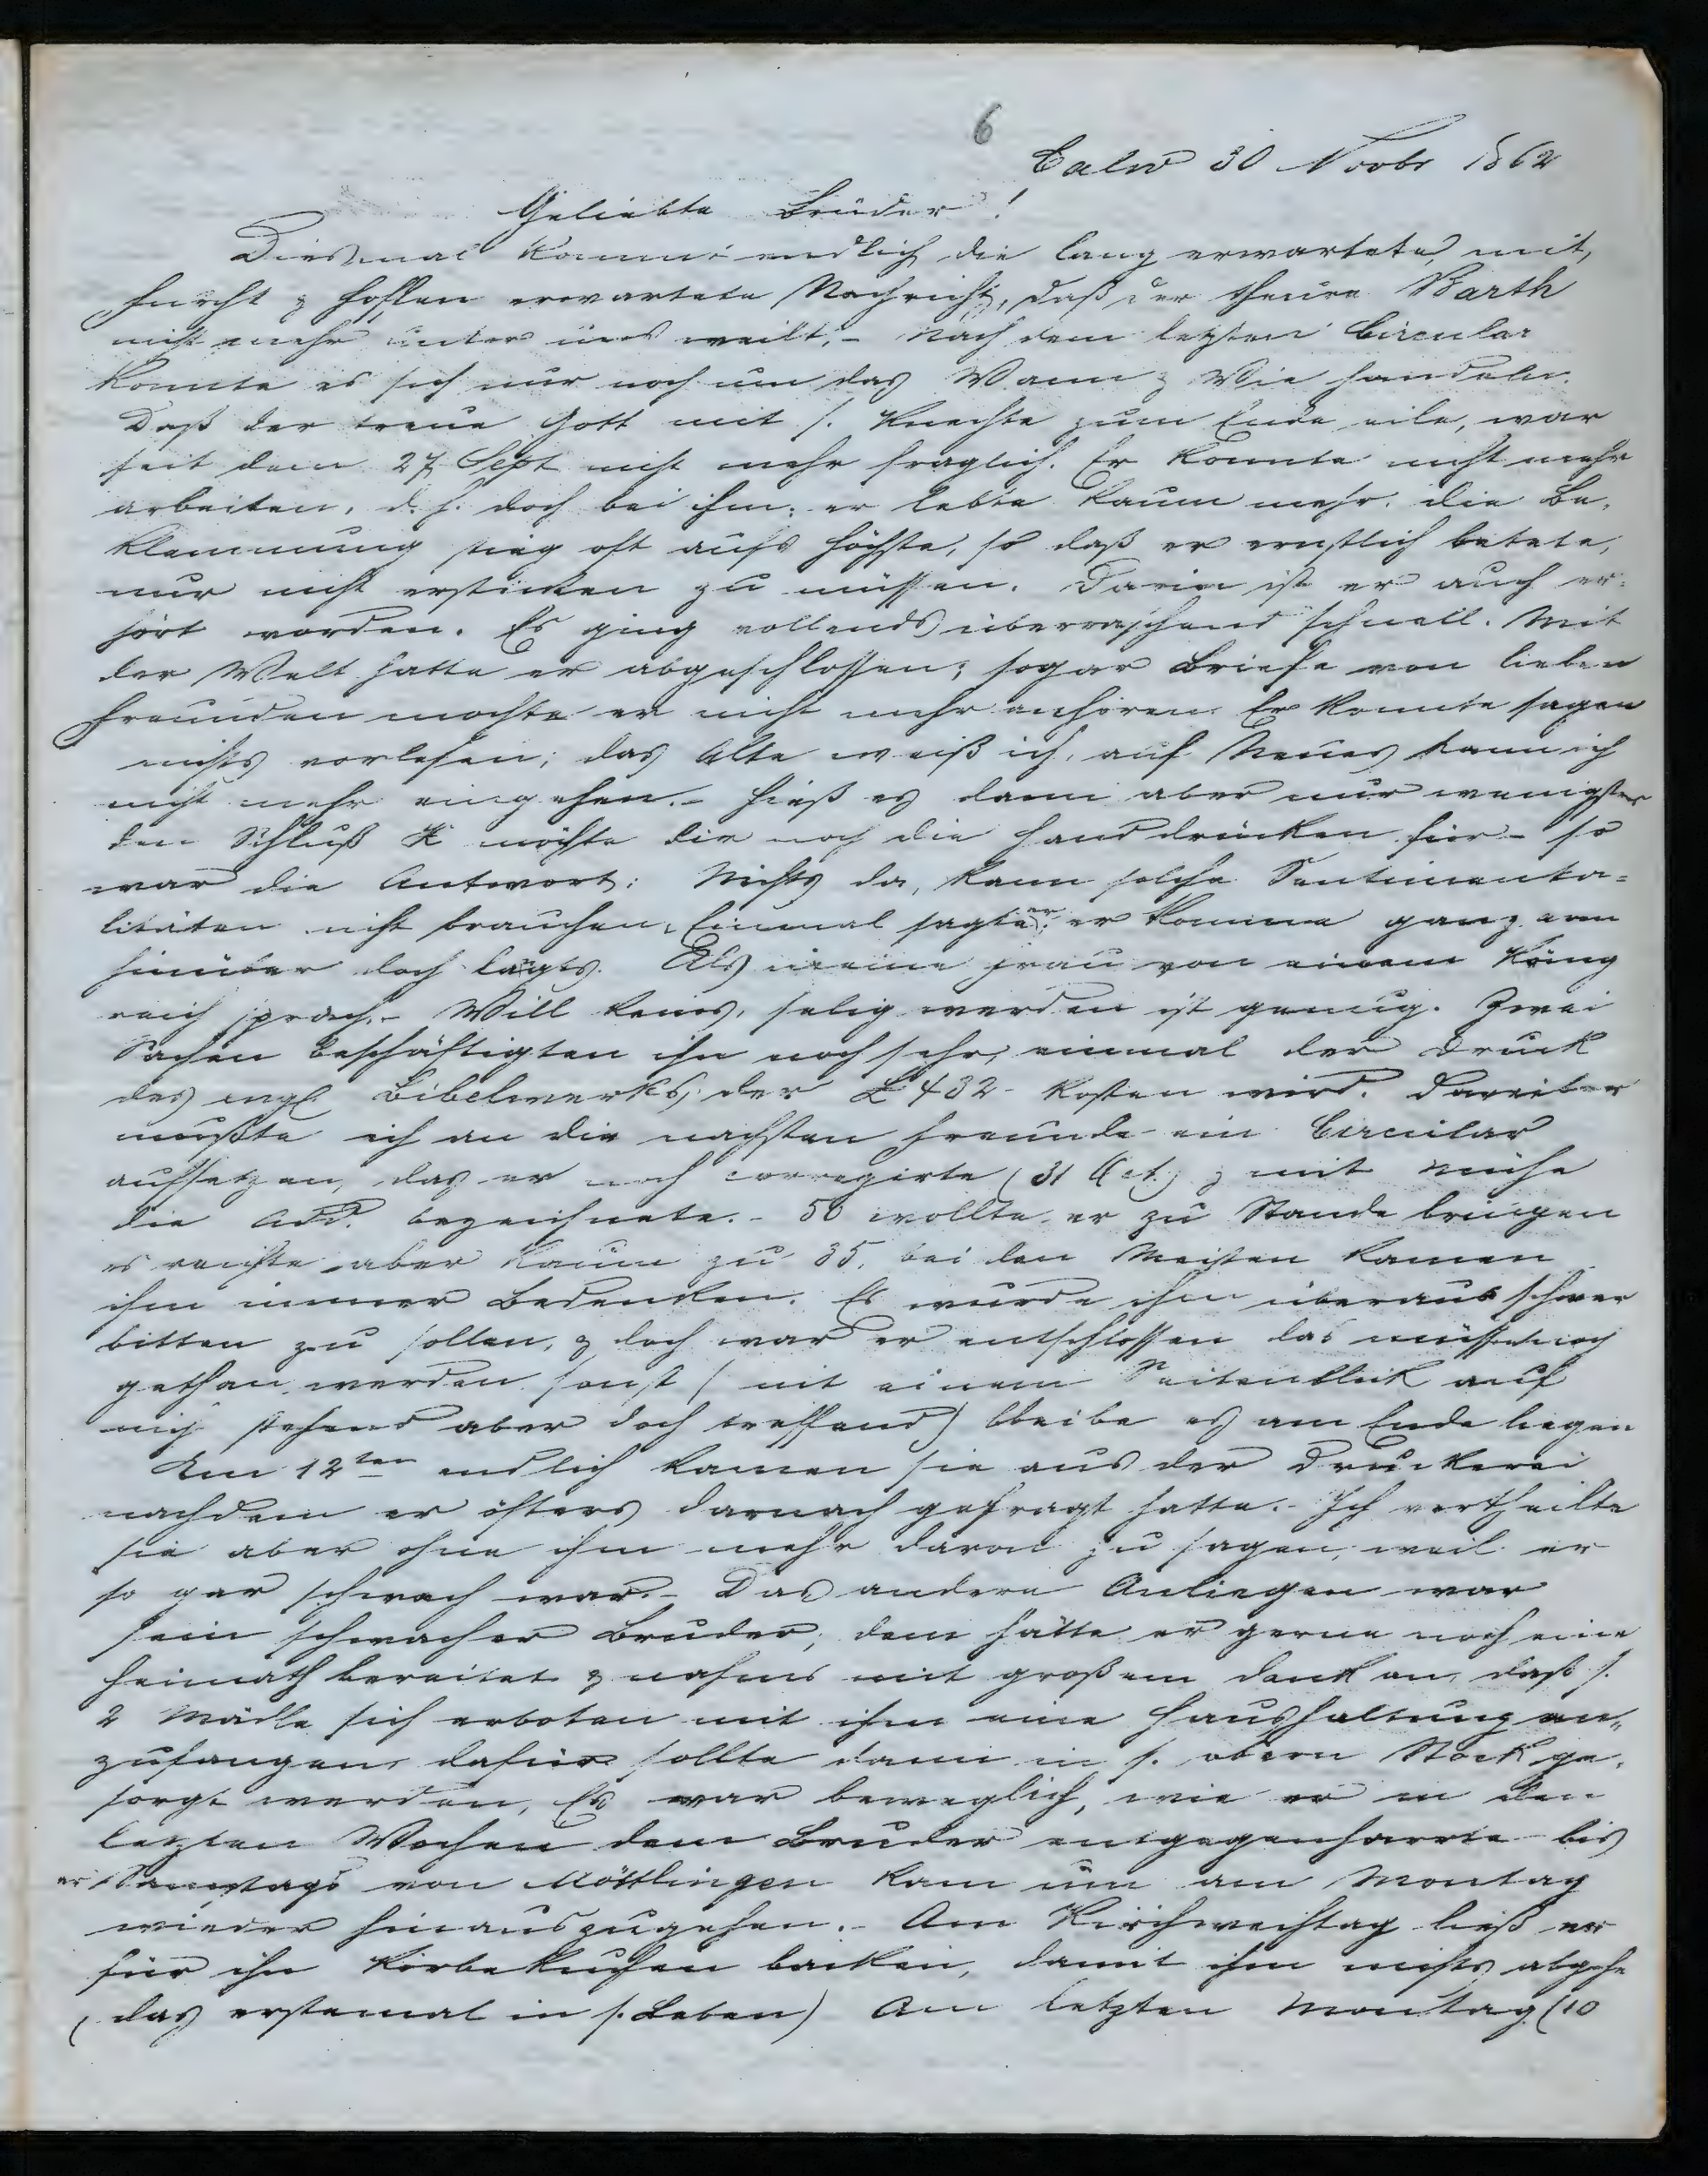 6
Calw 30 Novbr 1862
Geliebte Brüder!
Diesmal kommt endlich die lang erwartete, mit
Furcht & Hoffen erwartete Nachricht, daß der theure Barth
nicht mehr unter uns weilt. - Nach dem letzten Circular
konnte es sich nur noch um das Wann & Wie handeln.
Daß der treue Gott mit s. Knechte zum Ende eile, war
seit dem 27 Sept nicht mehr fraglich. Er konnte nicht mehr
arbeiten, d. h. doch bei ihm: er lebte kaum mehr. die Be-
klemmung stieg oft aufs höchste, so daß er ernstlich betete,
nur nicht ersticken zu müssen. Darin ist er auch er-
hört worden. Es ging vollends überraschend schnell. Mit
der Welt hatte er abgeschlossen; sogar Briefe von lieben
Freunden mochte er nicht mehr anhören. Er konnte sagen
nichts vorlesen; das Alte weiß ich, auf Neues kann ich
nicht mehr eingehen. - Hieß es dann aber nur wenigstens
den Schluß X möchte dir noch die Hand drücken für - so
war die Antwort: Nichts da, kann solche Sentimenta-
litäten nicht brauchen. Einmal sagte er: er komme ganz arm
hinüber doch Als meine Frau von einem König
reich sprach. - Will keins, selig werden ist genug. Zwei
Sachen beschäftigten ihn noch sehr, einmal der Druck
des engl Bibelwerks, der £ 432 - kosten wird. Darüber
mußte ich an die nächsten Freunde ein Circular
aufsetzen, das er noch corregirte (31 Oct.) & mit Mühe
die Add. bezeichnete. - 50 wollte er zu Stande bringen
es reichte aber kaum zu 35, bei den Meisten kamen
ihm immer Bedenken. Es wurde ihm überaus schwer
bitten zu sollen, & doch war er entschlossen das müsse noch
gethan werden sonst (mit einem Seitenblick auf
mich aber doch treffend) bleibe es am Ende liegen
Am 12ten endlich kamen sie aus der Druckerei
nachdem er öfters darnach gefragt hatte. - Ich vertheilte
sie aber ohne ihm mehr davon zu sagen, weil er
so gar schwach war. - Das andere Anliegen war
sein schwacher Bruder, dem hätte er gerne noch eine
Heimath bereitet & nahms mit großem Dank an, daß s.
2 Mädle sich erboten mit ihm eine Haushaltung an-
zufangen dafür sollte dann in s. obern Stock ge-
sorgt werden, Es war beweglich, wie er in den
letzten Wochen dem Bruder entgegenharrte bis
er Samstags von Möttlingen kam um am Montag
wieder hinauszugehen. - Am Kirchweihtag ließ er
für ihn Kirbekuchen backen, damit ihm nichts abgehe
(das erstemal in s. Leben) Am letzten Montag (10